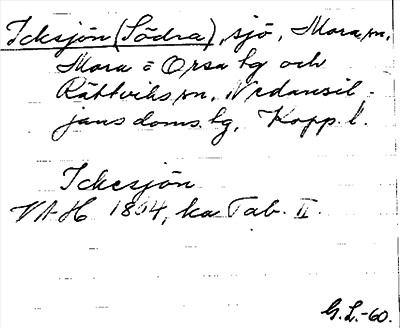 Icksjön (Södra), sjö, Mora sn,
Mora o Orsa hg och
Rättviks sn, Nedansil-
jans doms. hg, Kopp. l.
Ickesjön
VAH 1804, ka Tab. II.
G. L. -60.